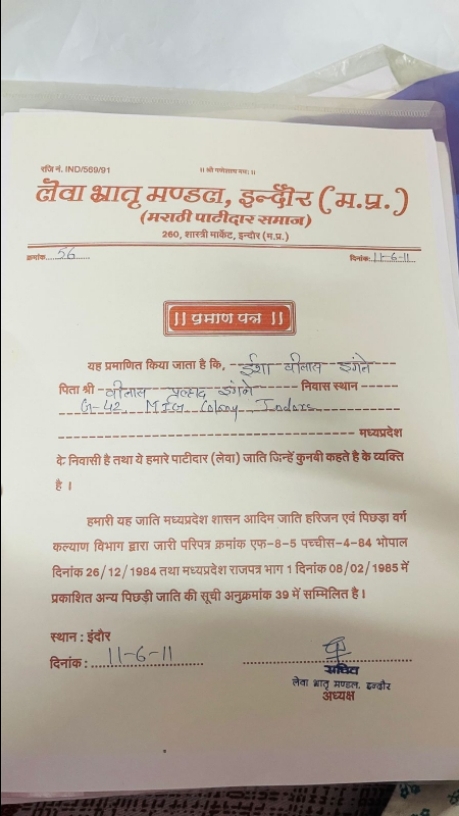 रजि नं. IND/569/91
।। श्री गणेशाय नमः ।।
लेवा भ्रातृ मण्डल, इन्दौर (म.प्र.)
(मराठी पाटीदार समाज)
260, शास्त्री मार्केट, इन्दौर (म.प्र.)
क्रमांक 56
दिनांक 11-6-11
।। प्रमाण पत्र ।।
यह प्रमाणित किया जाता है कि, ईशा वीलास इंगने
पिता श्री वीलास प्रल्हाद इंगने निवास स्थान
G-42 MIG Colony Indore
मध्यप्रदेश
के निवासी है तथा ये हमारे पाटीदार (लेवा) जाति जिन्हें कुनवी कहते है के व्यक्ति
है ।
हमारी यह जाति मध्यप्रदेश शासन आदिम जाति हरिजन एवं पिछड़ा वर्ग
कल्याण विभाग द्वारा जारी परिपत्र क्रमांक एफ-8-5 पच्चीस-4-84 भोपाल
दिनांक 26/12/1984 तथा मध्यप्रदेश राजपत्र भाग 1 दिनांक 08/02/1985 में
प्रकाशित अन्य पिछड़ी जाति की सूची अनुक्रमांक 39 में सम्मिलित है ।
स्थान : इंदौर
दिनांक : 11-6-11
सचिव
लेवा भ्रातृ मण्डल, इन्दौर
अध्यक्ष